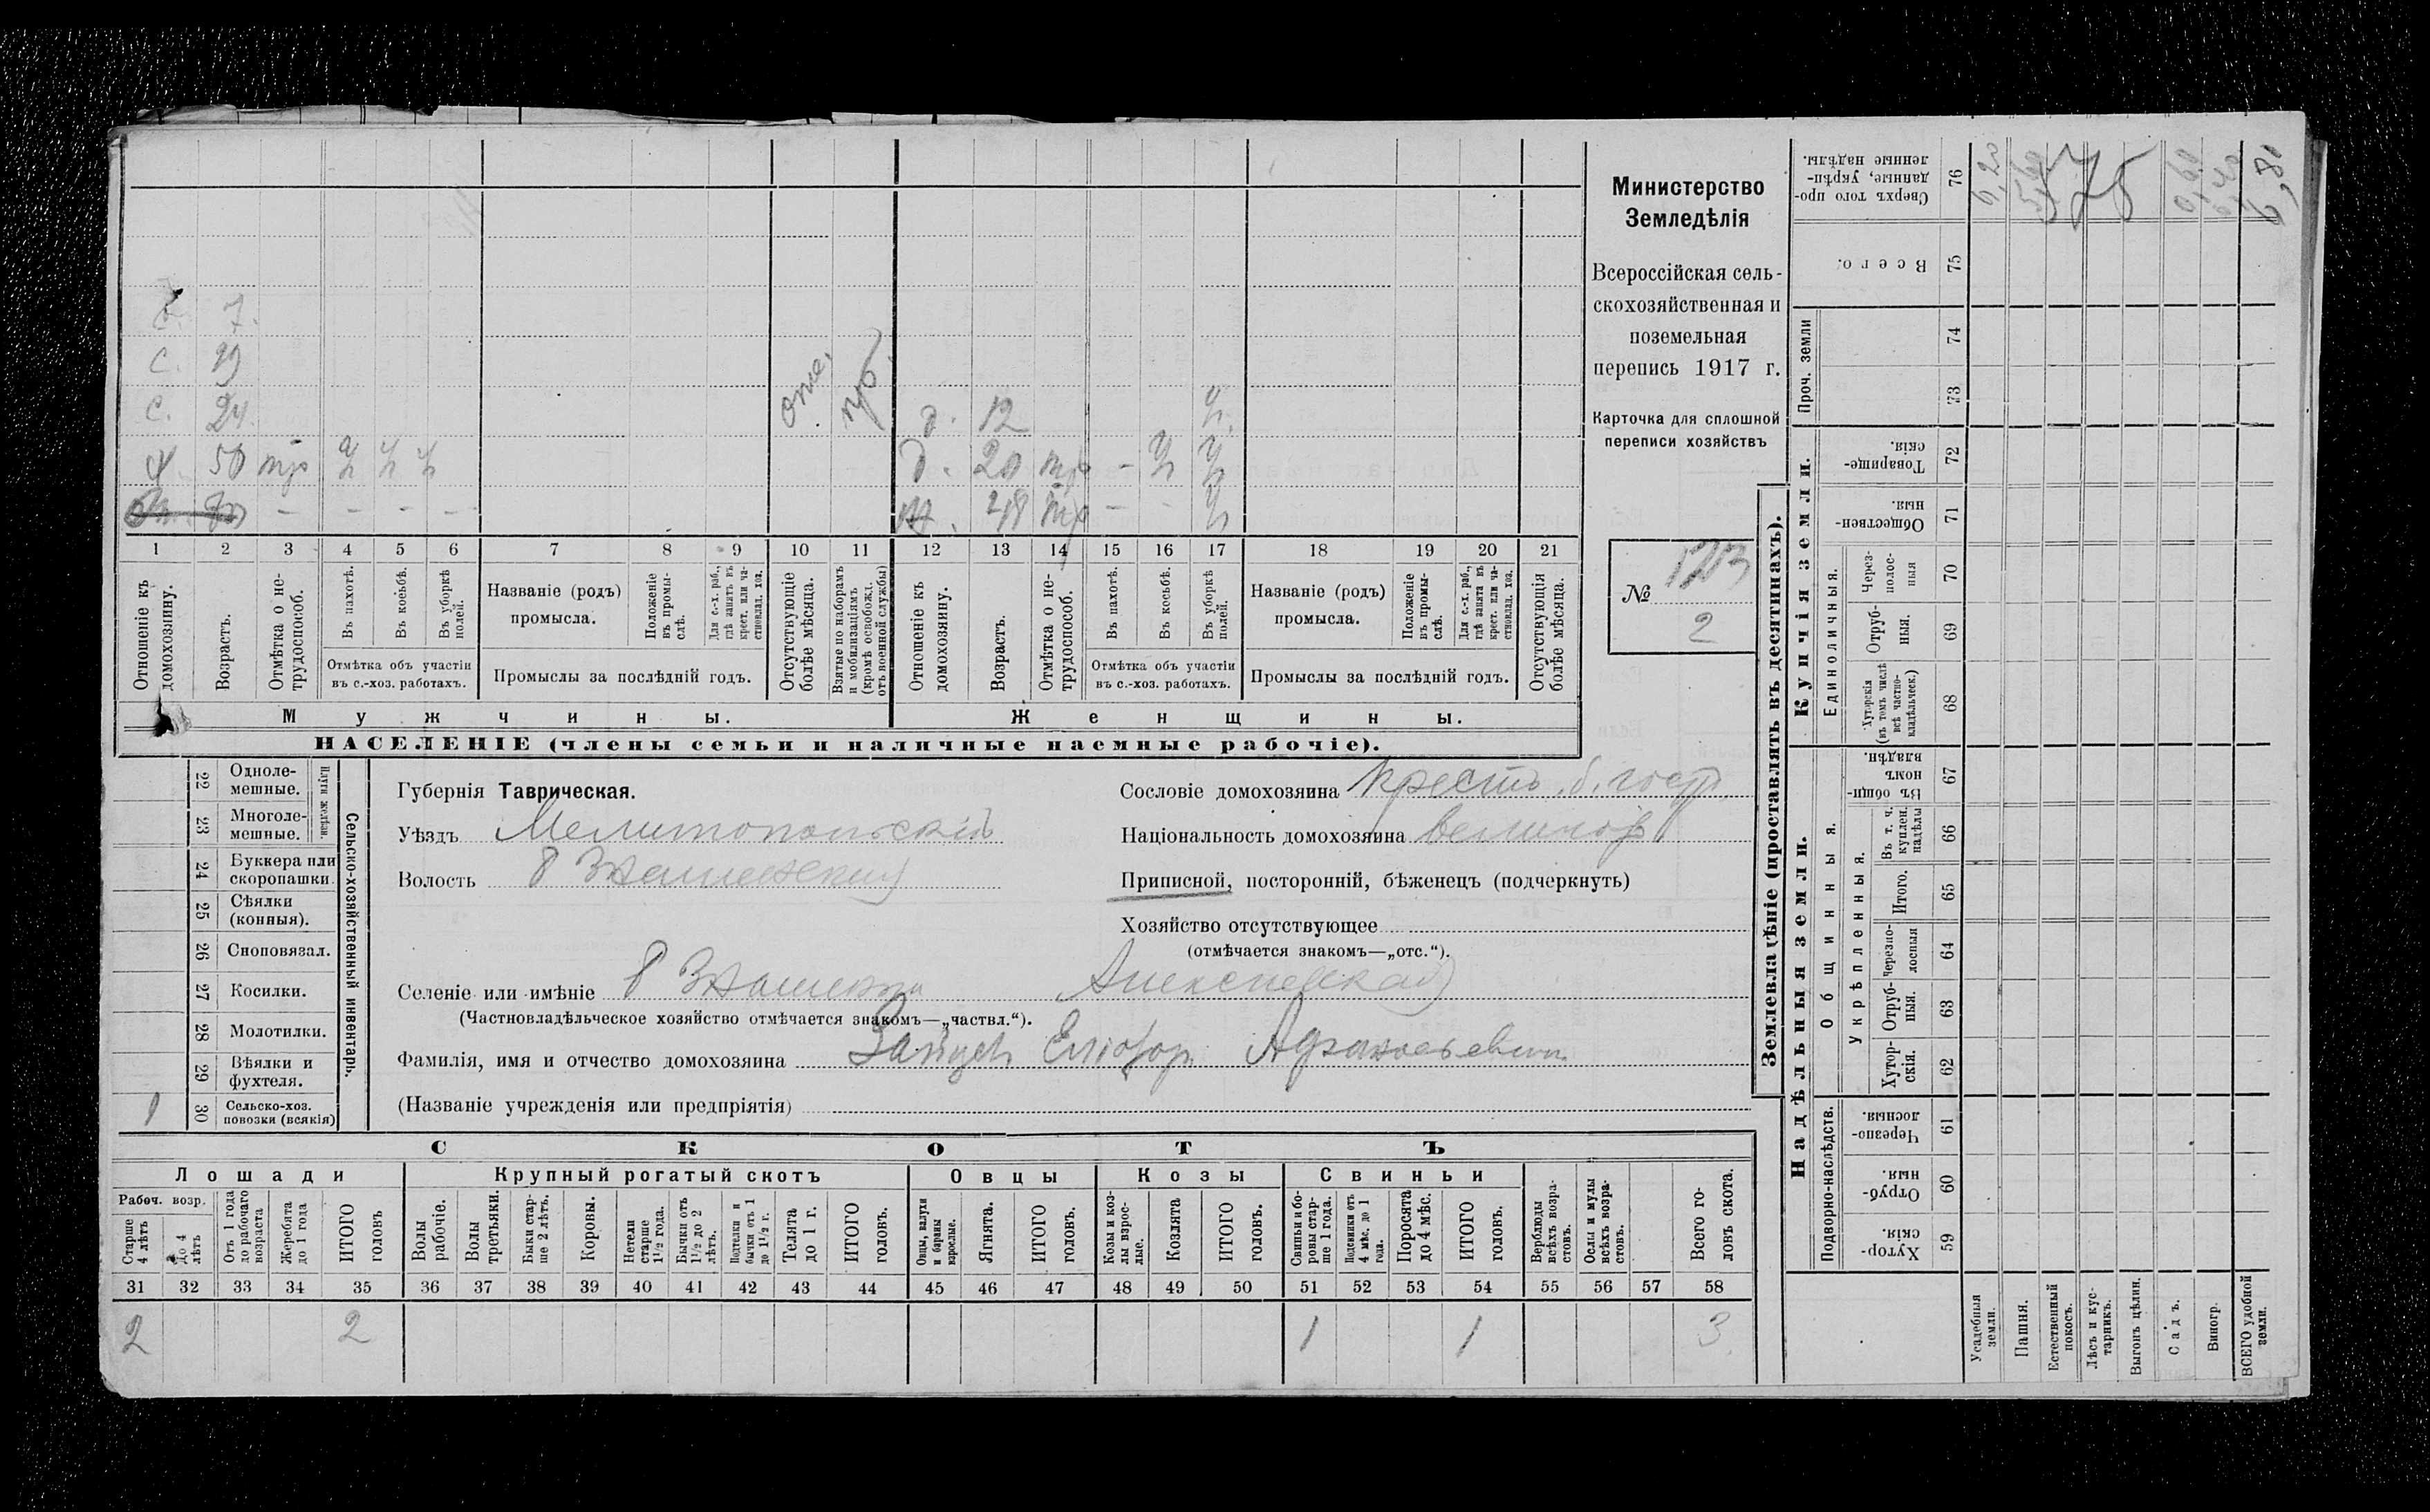 с. 7.
с. 29
с. 24. отс. пр.
х. 50 тр ч ч ч
— — — —
д. 12 ч.
д. 20 тр — ч ч
ж. 48 тр — — ч
1 2 3 4 5 6 7 8 9 10 11 12 13 14 15 16 17 18 19 20 21
Отношеніе къ домохозяину.
Возрастъ.
Отмѣтка о не-трудоспособ.
Въ пахотѣ.
Въ косьбѣ.
Въ уборкѣ полей.
Отмѣтка объ участіи
въ с.-хоз. работахъ.
Названіе (родъ)
промысла.
Положеніе въ промы-слѣ.
Для с.-х. раб., гдѣ занятъ въ крест. или ча-стновлад. хоз.
Промыслы за послѣдній годъ.
Отсутствующіе болѣе мѣсяца.
Взятые по наборамъ и мобилизаціямъ (кромѣ освобожд. отъ военной службы)
Отношеніе къ домохозяину.
Возрастъ.
Отмѣтка о не-трудоспособ.
Въ пахотѣ.
Въ косьбѣ.
Въ уборкѣ полей.
Отмѣтка объ участіи
въ с.-хоз. работахъ.
Названіе (родъ)
промысла.
Положеніе въ промы-слѣ.
Для с.-х. раб., гдѣ занята въ крест. или ча-стновлад. хоз.
Промыслы за послѣдній годъ.
Отсутствующія болѣе мѣсяца.
Мужчины.
Женщины.
НАСЕЛЕНІЕ (члены семьи и наличные наемные рабочіе).
Министерство
Земледѣлія
Всероссійская сель-
скохозяйственная и
поземельная
перепись 1917 г.
Карточка для сплошной
переписи хозяйствъ
№ 123
2
Сельско-хозяйственный инвентарь.
Плуги желѣзн.
22 Одноле-
мешные.
23 Многоле-
мешные.
24 Буккера или
скоропашки.
25 Сѣялки
(конныя).
26 Сноповязал.
27 Косилки.
28 Молотилки.
29 Вѣялки и
фухтеля.
1 30 Сельско-хоз.
повозки (всякія)
Губернія Таврическая.
Уѣздъ Мелитопольскій
Волость
Селеніе или имѣніе
(Частновладѣльческое хозяйство отмѣчается знакомъ—„частвл.“).
Фамилія, имя и отчество домохозяина Заяцъ
(Названіе учрежденія или предпріятія)
Сословіе домохозяина крестъ. б. госуд.
Національность домохозяина великор
Приписной, посторонній, бѣженецъ (подчеркнуть)
Хозяйство отсутствующее
(отмѣчается знакомъ—„отс.“).
СКОТЪ
Лошади
Рабоч. возр.
Старше 4 лѣтъ
до 4 лѣтъ
Отъ 1 года до рабочаго возраста
Жеребята до 1 года
ИТОГО головъ
Крупный рогатый скотъ
Волы рабочіе.
Волы третьяки.
Быки стар-ше 2 лѣтъ.
Коровы.
Нетели старше 1½ года.
Бычки отъ 1½ до 2 лѣтъ.
Подтелки и бычки отъ 1 до 1½ г.
Телята до 1 г.
ИТОГО головъ.
Овцы
Овцы, валухи и бараны взрослые.
Ягнята.
ИТОГО головъ.
Козы
Козы и коз-лы взрос-лые.
Козлята
ИТОГО головъ.
Свиньи
Свиньи и бо-ровы стар-ше 1 года.
Подсвинки отъ 4 мѣс. до 1 года.
Поросята до 4 мѣс.
ИТОГО головъ.
Верблюды всѣхъ возра-стовъ.
Ослы и мулы всѣхъ возра-стовъ.
Всего го-ловъ скота.
31 32 33 34 35 36 37 38 39 40 41 42 43 44 45 46 47 48 49 50 51 52 53 54 55 56 57 58
2 2 1 1 3
Землевладѣніе (проставлять въ десятинахъ).
Надѣльныя земли.
Купчія земли.
Проч. земли
Подворно-наслѣдств.
Общинныя.
Укрѣпленныя.
Единоличныя.
76 Сверхъ того про-
данные, укрѣп-
ленные надѣлы.
75 Всего.
74
73
72 Товарище-
скія.
71 Обществен-
ныя.
70 Через-
полос-
ныя
69 Отруб-
ныя.
68 Хуторскія
(въ томъ числѣ
всѣ частно-
владѣльческ.)
67 Въ общин-
номъ
владѣн.
66 Въ т. ч.
куплен.
надѣлы
65 Итого.
64 Черезпо-
лосныя
63 Отруб-
ныя.
62 Хутор-
скія.
61 Черезпо-
лосныя.
60 Отруб-
ныя.
59 Хутор-
скія.
Усадебныя земли.
Пашня.
Естественный покосъ.
Лѣсъ и кус-тарникъ.
Выгонъ цѣлин.
Садъ.
Виногр.
ВСЕГО удобной земли.
575
6,81